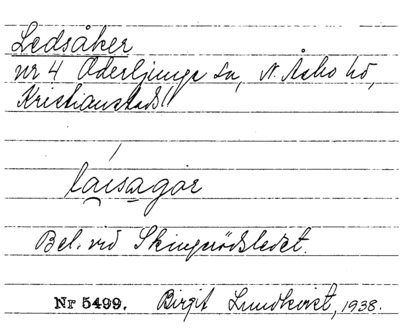 Ledsåker
nr 4 Oderljunga sn, N. Åsbo hd,
Kristianstads l.
laisagår
Bel. vid Skingerödsledet.
Nr 5499. Birgit Lundkvist, 1938.